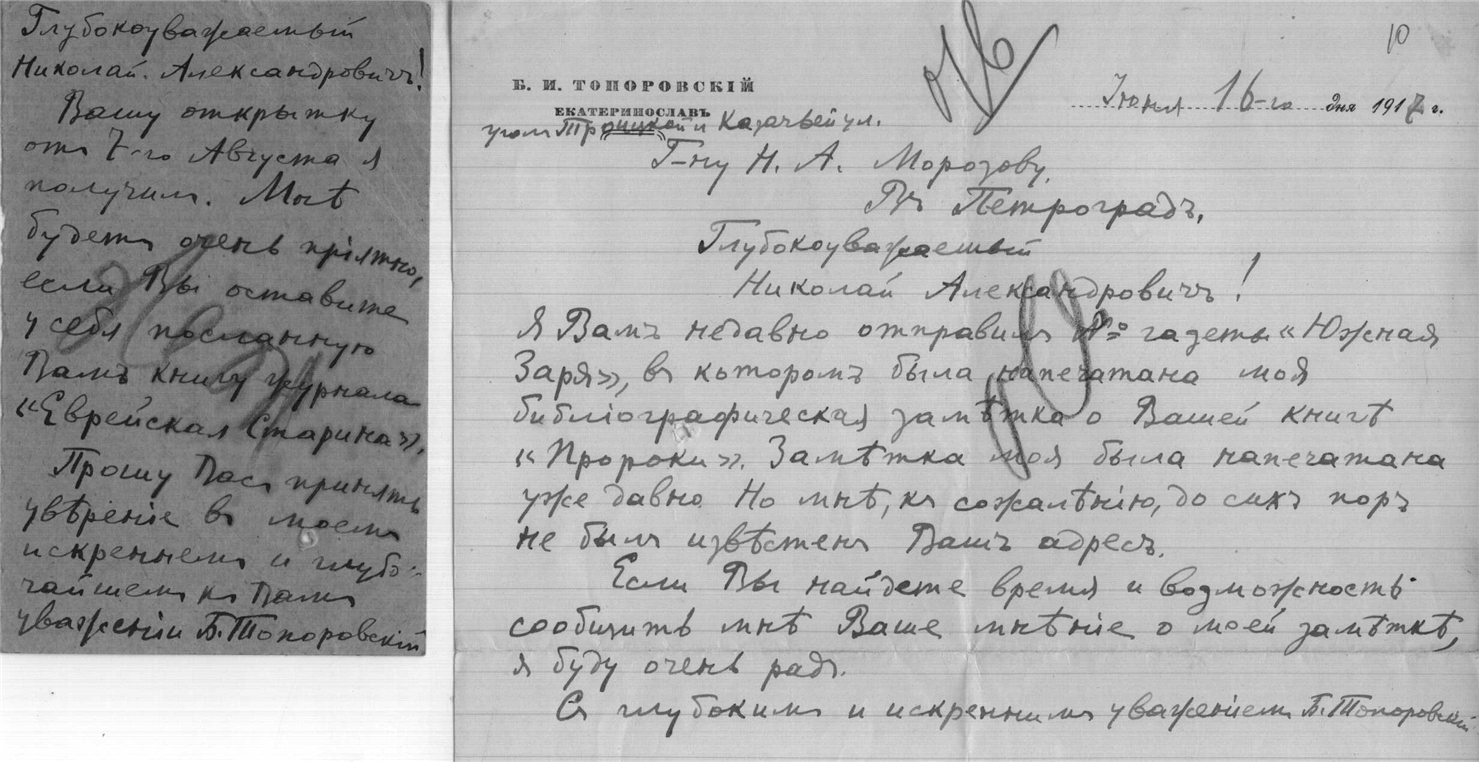 Глубокоуважаемый
Николай Александровичъ!
Вашу открытку
отъ 7-го Августа я
получилъ. Мнѣ
будетъ очень пріятно,
если Вы оставите
у себя посланную
Вамъ книгу журнала
«Еврейская Старина».
Прошу Васъ принять
увѣреніе въ моемъ
искреннемъ и глубо-
чайшемъ къ Вамъ
уваженіи Б. Топоровскій
10
Б. И. ТОПОРОВСКІЙ
ЕКАТЕРИНОСЛАВЪ
уголъ Троицкой и Казачьей ул.
Іюня 16-го дня 1917 г.
Г-ну Н. А. Морозову.
Въ Петроградъ.
Глубокоуважаемый
Николай Александровичъ!
Я Вамъ недавно отправилъ № газеты «Южная
Заря», въ которомъ была напечатана моя
библіографическая замѣтка о Вашей книгѣ
«Пророки». Замѣтка моя была напечатана
уже давно. Но мнѣ, къ сожалѣнію, до сихъ поръ
не былъ извѣстенъ Вашъ адресъ.
Если Вы найдете время и возможность
сообщить мнѣ Ваше мнѣніе о моей замѣткѣ,
я буду очень радъ.
Съ глубокимъ и искреннимъ уваженіемъ Б. Топоровскій